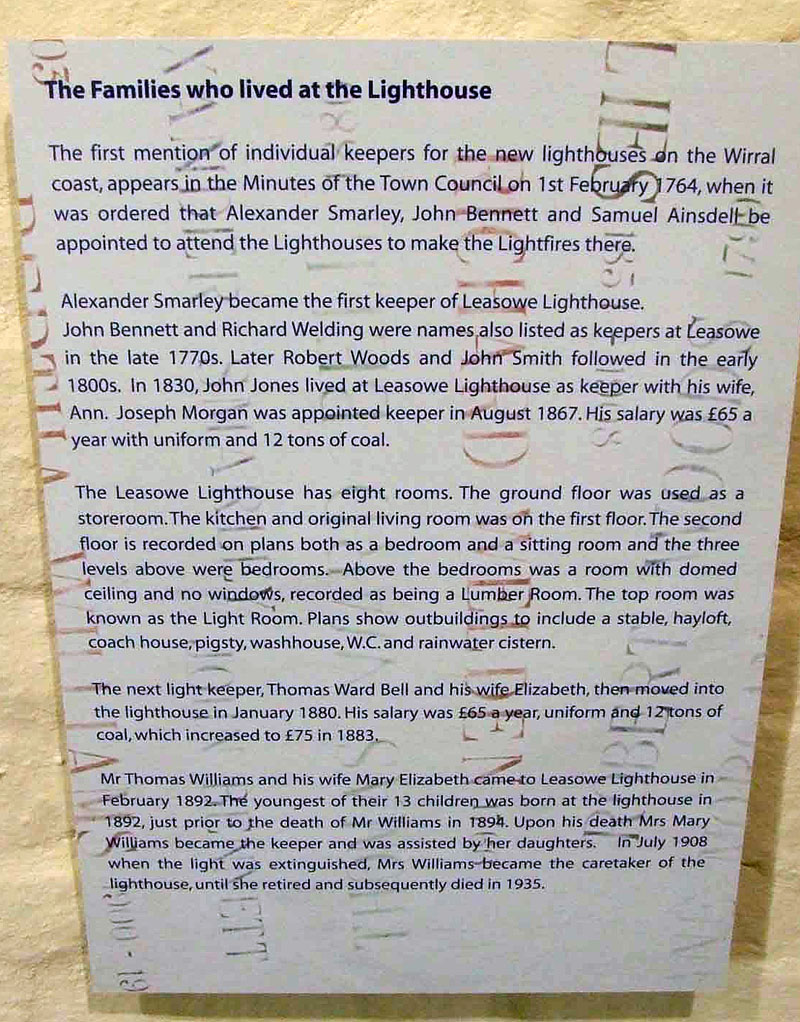 The Families who lived at the Lighthouse
The first mention of individual keepers for the new lighthouses on the Wirral
coast, appears in the Minutes of the Town Council on 1st February 1764, when it
was ordered that Alexander Smarley, John Bennett and Samuel Ainsdell be
appointed to attend the Lighthouses to make the Lightfires there.
Alexander Smarley became the first keeper of Leasowe Lighthouse.
John Bennett and Richard Welding were names also listed as keepers at Leasowe
in the late 1770s. Later Robert Woods and John Smith followed in the early
1800s. In 1830, John Jones lived at Leasowe Lighthouse as keeper with his wife,
Ann. Joseph Morgan was appointed keeper in August 1867. His salary was £65 a
year with uniform and 12 tons of coal.
The Leasowe Lighthouse has eight rooms. The ground floor was used as a
storeroom. The kitchen and original living room was on the first floor. The second
floor is recorded on plans both as a bedroom and a sitting room and the three
levels above were bedrooms. Above the bedrooms was a room with domed
ceiling and no windows, recorded as being a Lumber Room. The top room was
known as the Light Room. Plans show outbuildings to include a stable, hayloft,
coach house, pigsty, washhouse, W.C. and rainwater cistern.
The next light keeper, Thomas Ward Bell and his wife Elizabeth, then moved into
the lighthouse in January 1880. His salary was £65 a year, uniform and 12 tons of
coal, which increased to £75 in 1883.
Mr Thomas Williams and his wife Mary Elizabeth came to Leasowe Lighthouse in
February 1892. The youngest of their 13 children was born at the lighthouse in
1892, just prior to the death of Mr Williams in 1894. Upon his death Mrs Mary
Williams became the keeper and was assisted by her daughters. In July 1908
when the light was extinguished, Mrs Williams became the caretaker of the
lighthouse, until she retired and subsequently died in 1935.